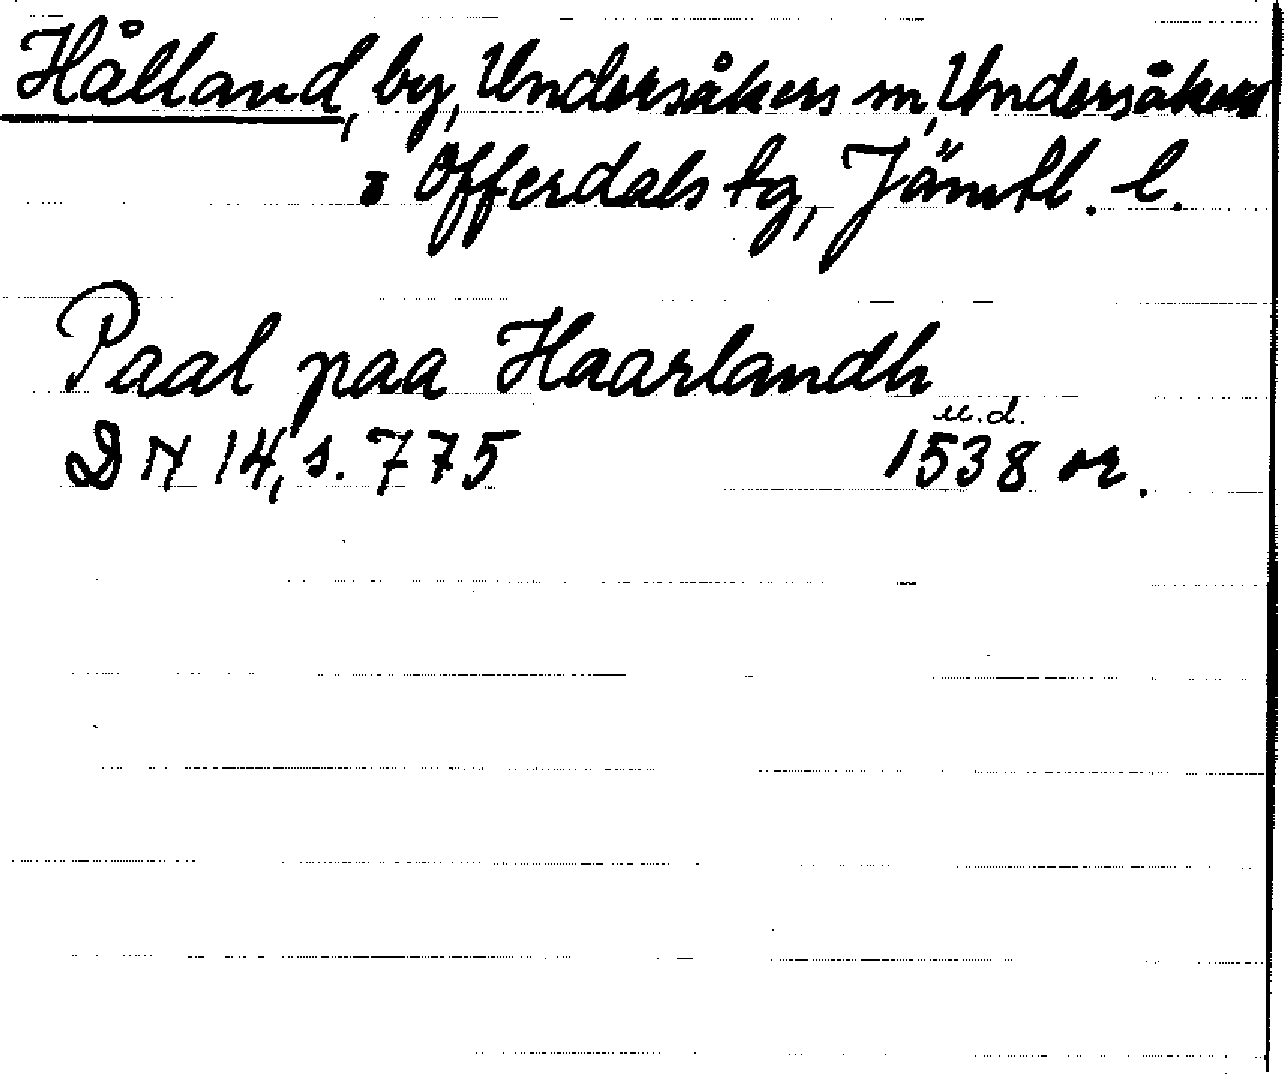 Hålland, by, Undersåkers sn, Undersåkers
o Offerdals tg, Jämtl. l.
Paal paa Haarlandh
u.d.
DN 14, s. 775 1538 or.